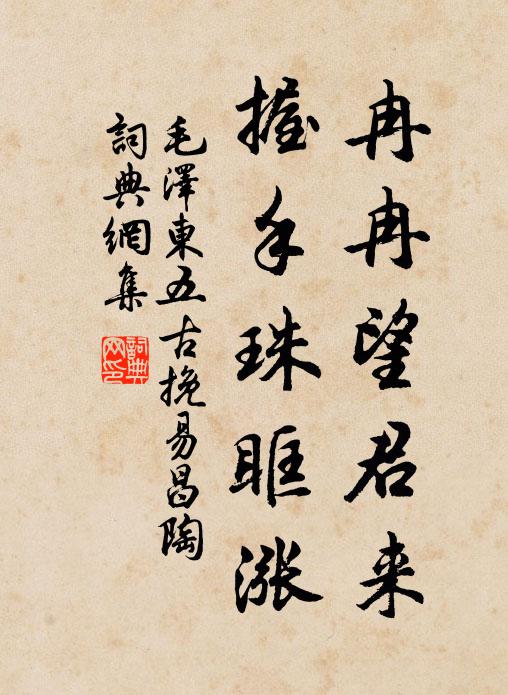 冉冉望君来
握手珠眶涨
毛澤東五古挽易昌陶
詞典網集
詞典网印